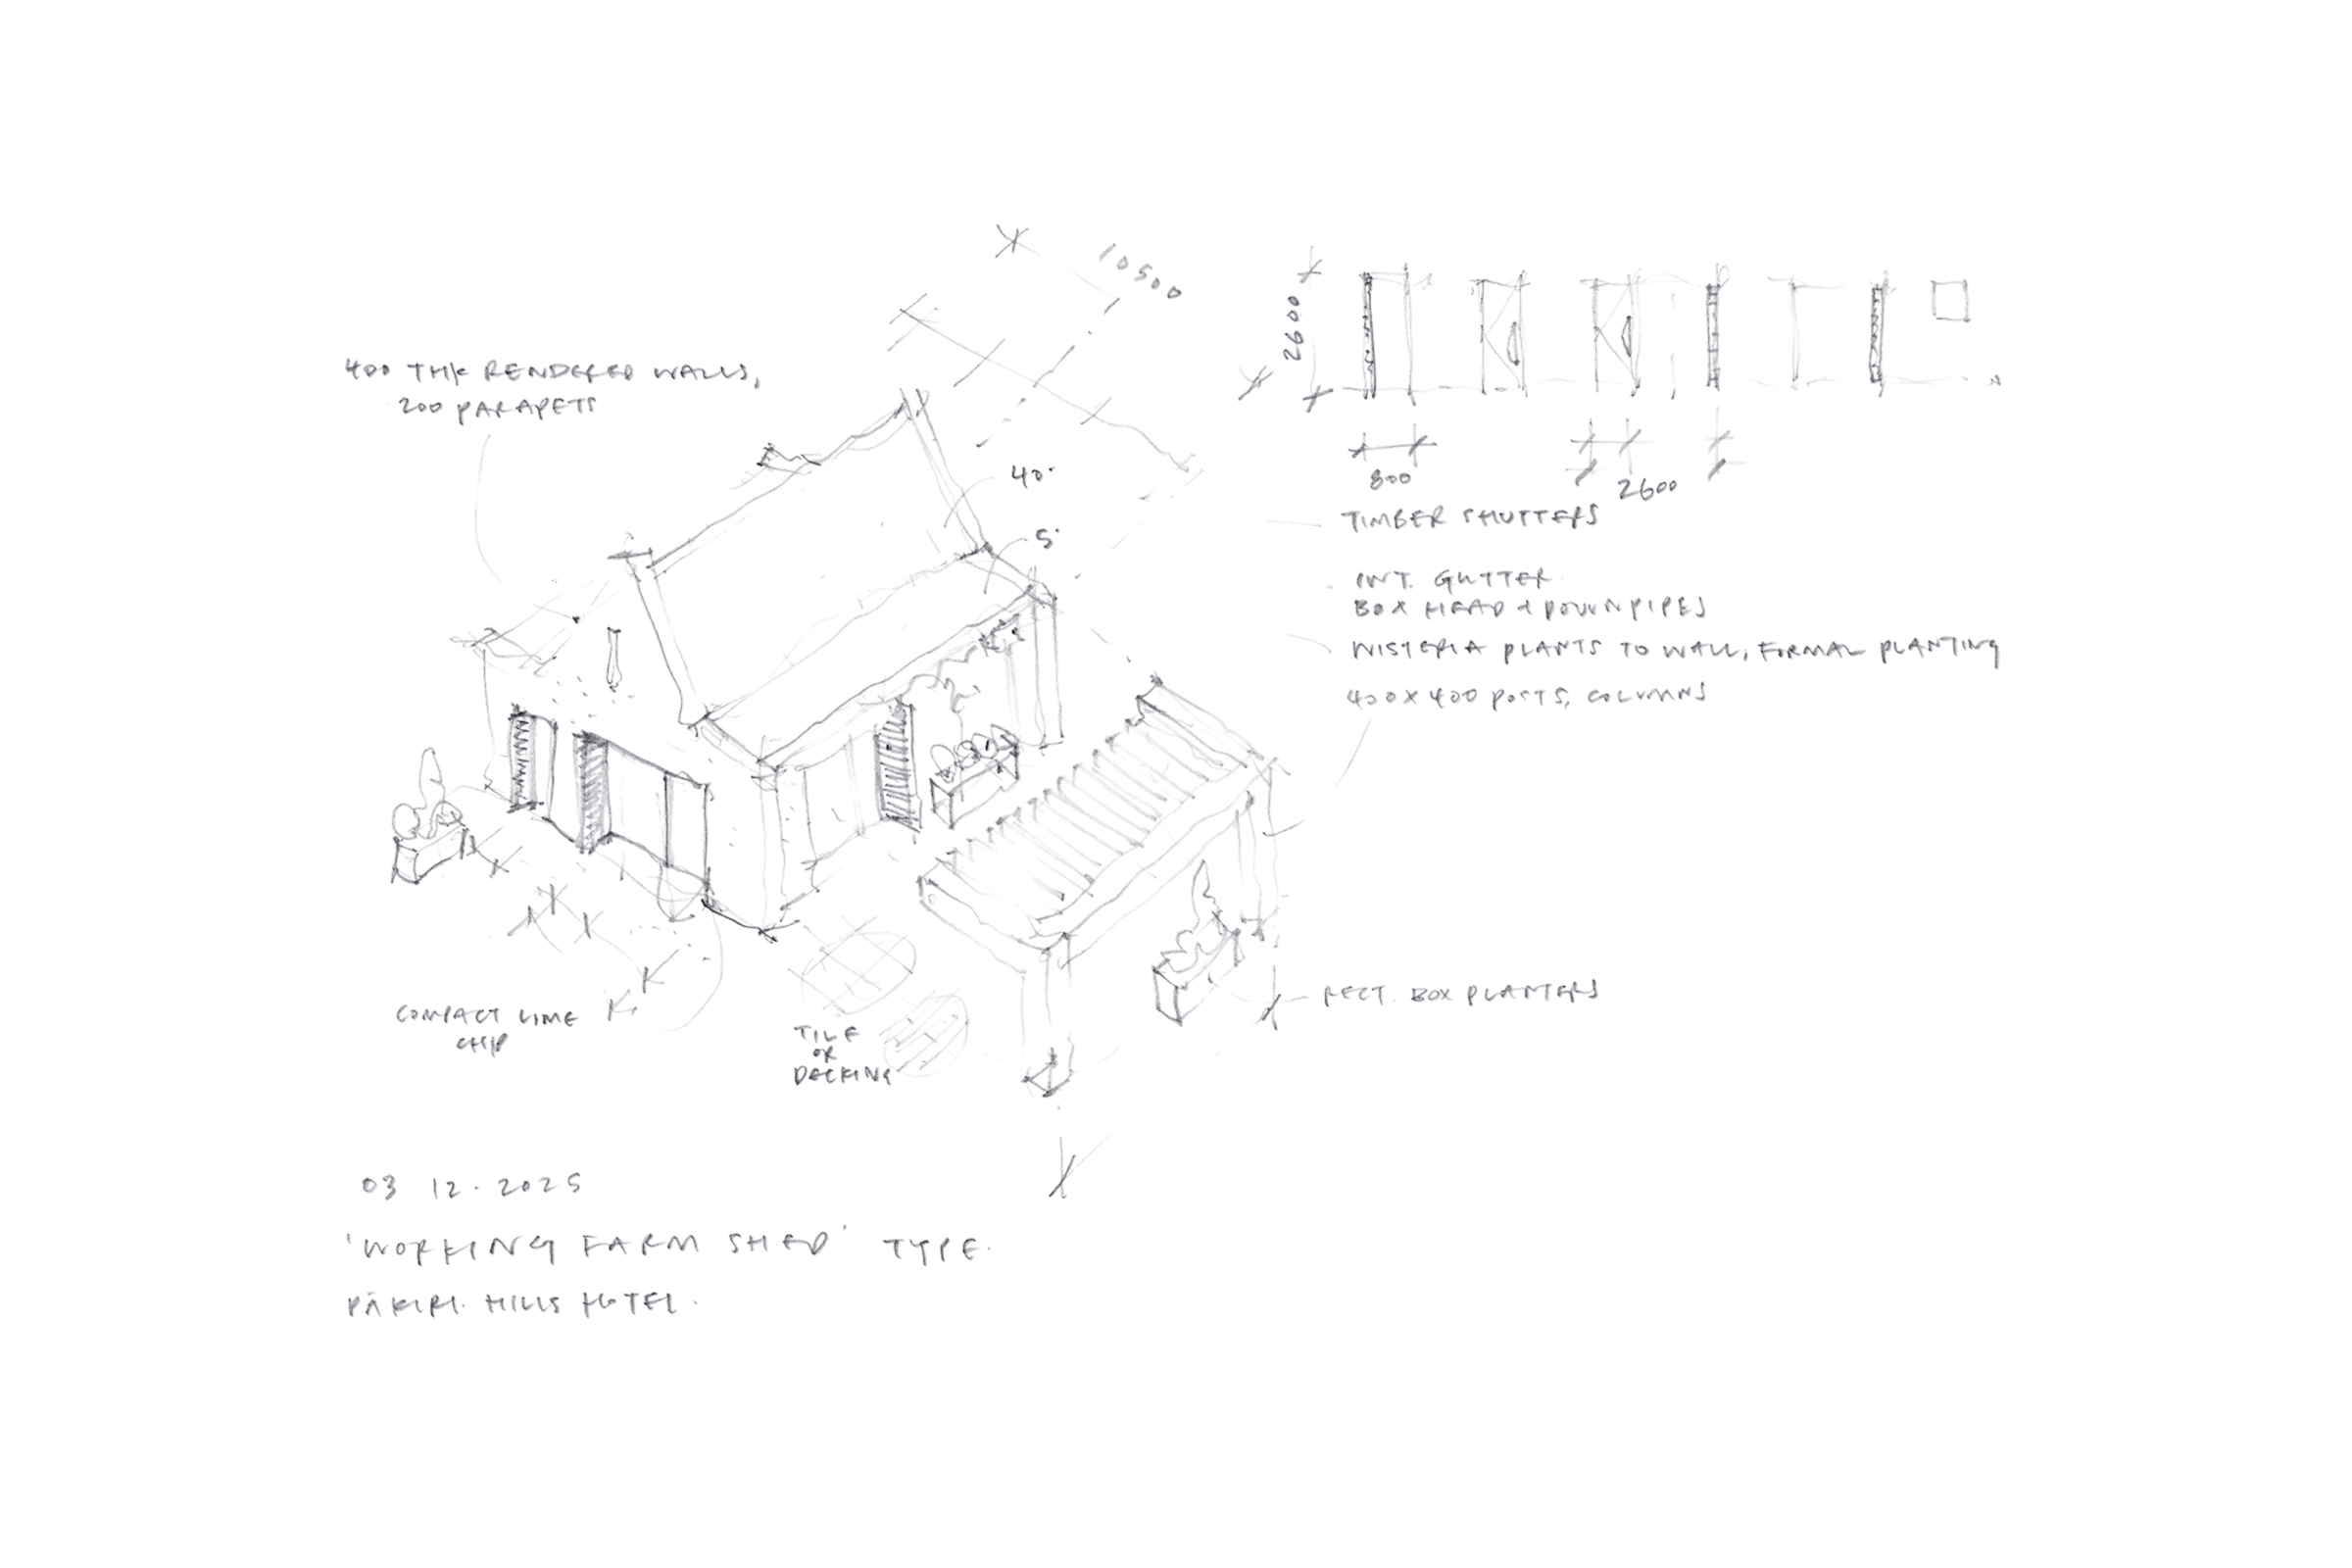 10500
2600
400 THK RENDERED WALLS,
200 PARAPETS
40°
5°
800
2600
TIMBER SHUTTERS
INT. GUTTER
BOX HEAD + DOWNPIPES
WISTERIA PLANTS TO WALL, FORMAL PLANTING
400X400 POSTS, COLUMNS
RECT. BOX PLANTERS
COMPACT LIME
CHIP
TILE
OR
DECKING
03 12.2025
'WORKING FARM SHED' TYPE.
PĀKIRI HILLS HOTEL.